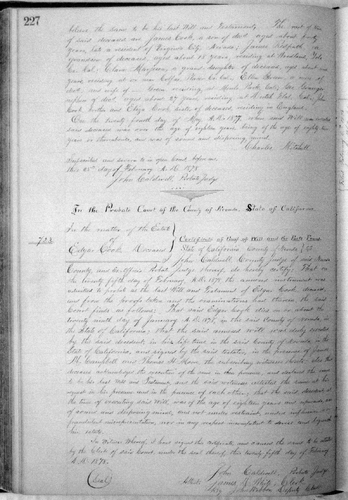 227
believe the same to be his last Will and Testament. The next of kin
of said deceased are James Cook, a son of dec'd aged about forty
years, late a resident of Virginia City Nevada;
grandson of deceased, aged about 25 years, residing at
Co. Cal.
years, residing at or near
of dec'd, and wife of Evans residing at
nephew of dec'd aged about 27 years residing at
and Eliza Cook, sister of deceased residing in England.
On the twenty fourth day of May A.D. 1877, when said Will was executed
said deceased was over the age of eighteen years, being of the age of eighty two
years or thereabouts, and was of sound and disposing mind.
Charles Mitchell
Subscribed and sworn to in open Court before me
this 25th day of February A.D. 1878
John Caldwell, Probate Judge
In the Probate Court of the County of Nevada, State of California.
In the matter of the Estate
of
Edgar Cook Deceased
Certificate of Proof of Will and the Facts Found
State of California
County of Nevada } SS.
John Caldwell, County Judge of said Nevada
County, and ex officio Probate Judge thereof, do hereby certify: That on
the twenty fifth day of February, A.D. 1878, the annexed instrument was
admitted to probate as the last Will and Testament of Edgar Cook, deceased
and from the proofs taken and the examinations had therein the said
Court finds as follows: That said Edgar Cook died on or about the
twenty ninth day of January A.D. 1878 in the said County of Nevada in
the State of California; that the said annexed Will was duly executed
by the said decedent in his life time in the said County of Nevada in the
State of California, and signed by the said testator, in the presence of
Campbell and Thomas H. the subscribing witnesses thereto; also that
decedent acknowledged the execution of the same in their presence, and declared the same
to be his last Will and Testament, and the said witnesses attested the same at his
request in his presence and in the presence of each other; that the said decedent at
the time of executing said Will, was of the age of eighteen years and upwards, was
of sound and disposing mind, and not under restraint, undue influence or
fraudulent misrepresentation, nor in any respect incompetent to devise and bequeath
his estate.
In Witness Whereof, I have signed this Certificate and caused the same to be attested
by the Clerk of said Court under the seal thereof this twenty fifth day of February
A.D. 1878.
John Caldwell, Probate Judge
(Seal)
Attest James
By Deputy Clerk